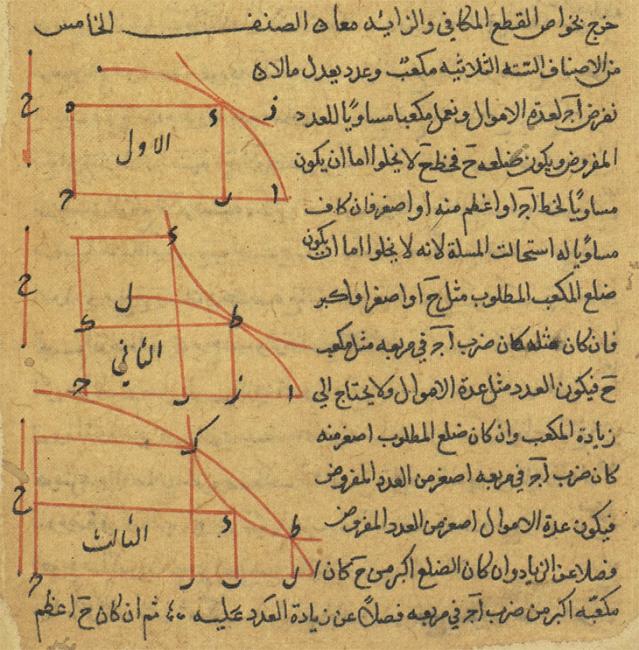 خرج بخواص القطع المكافي والزايد معا ں الصنف الخامس
من الاصناف الستة الثلاثيه مكعب وعدد يعدل مالا ں
نفرض اجـ لعدة الاموال ونعمل مكعبا مساويا للعدد
المفروض ويكون ضلعه ح فخط ح لا يخلوا اما ان يكون
مساويا لخط اجـ او اعظم منه او اصغر فان كا ں
مساويا له استحالت المسلة لانه لا يخلوا اما ان يكون
ضلع المكعب المطلوب مثل ح او اصغر او اكبر
فان كان مثله كان ضرب اجـ في مربعه مثل مكعب
ح فيكون العدد مثل عدة الاموال ولا يحتاج الى
زيادة المكعب وان كان ضلع المطلوب اصغر منه
كان ضرب اجـ في مربعه اصغر من العدد المفروض
فيكون عدة الاموال اصغر من العدد المفروض
فضلا عن الزياد وان كان الضلع اكبر من ح كان
مكعبه اكبر من ضرب اجـ في مربعه فضلا عن زيادة العدد عليه ثم ان كان ح اعظم
ح
ه
د
ز
الاول
ح
ب
ا
ح
د
ل
ك
ط
الثاني
ح
ب
ز
ا
ك
ح
د
ط
الثالث
ح
ب
ا